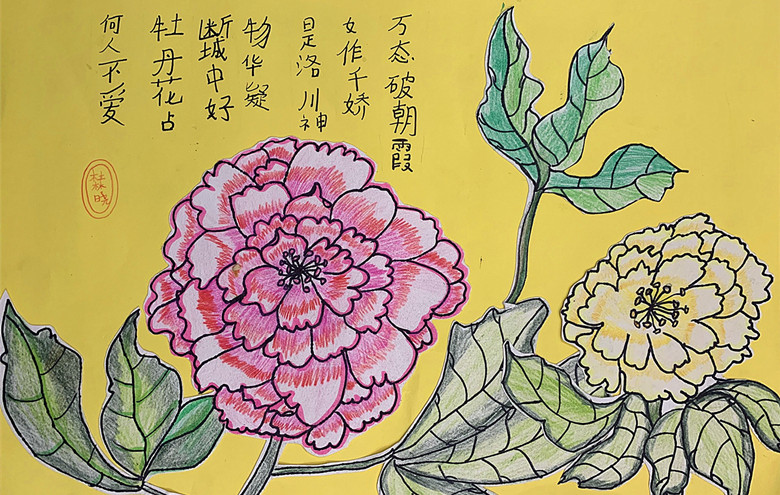 何人不爱
牡丹花占
断城中好
物华疑
是洛川神
女作千娇
万态破朝霞